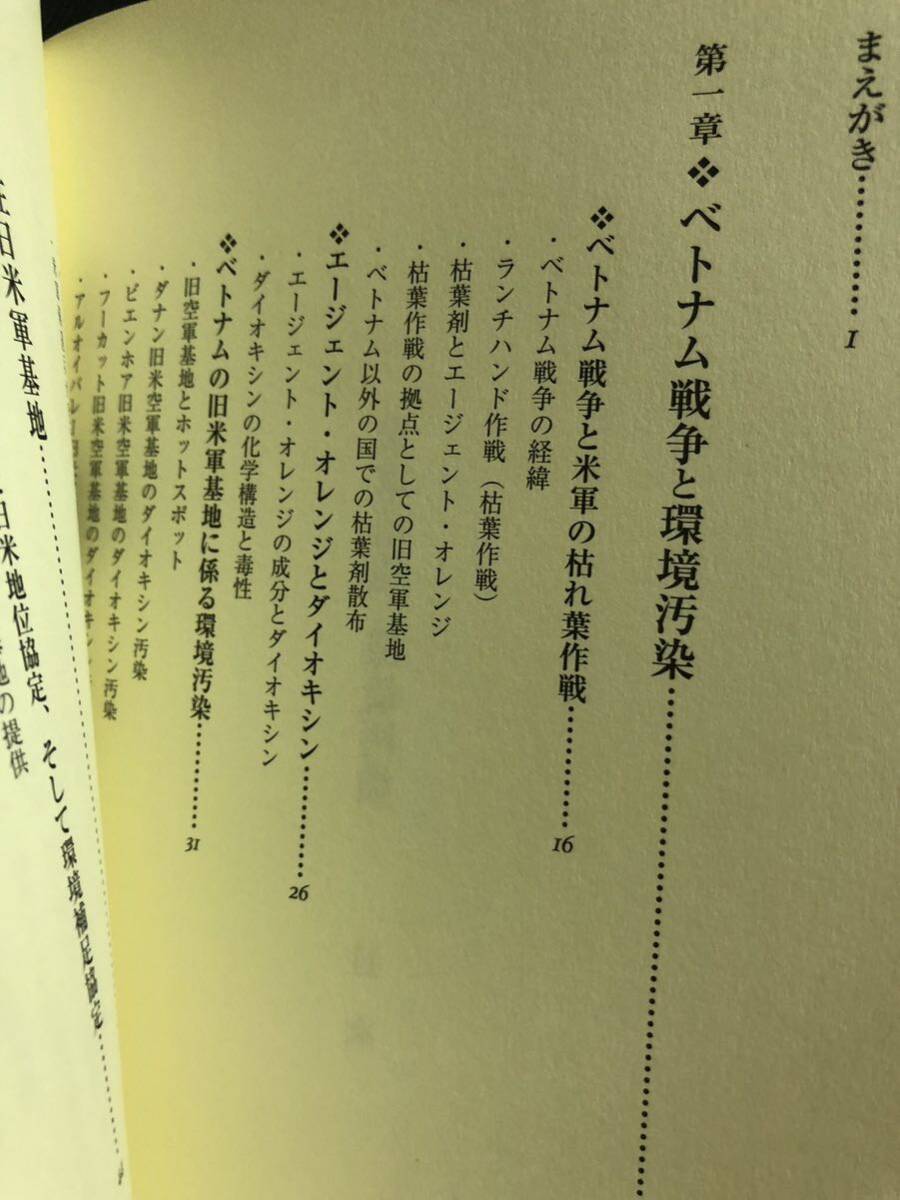 まえがき…………1
第一章❖ベトナム戦争と環境汚染…………
❖ベトナム戦争と米軍の枯れ葉作戦…………16
・ベトナム戦争の経緯
・ランチハンド作戦（枯葉作戦）
・枯葉剤とエージェント・オレンジ
・枯葉作戦の拠点としての旧空軍基地
・ベトナム以外の国での枯葉剤散布
❖エージェント・オレンジとダイオキシン…………26
・エージェント・オレンジの成分とダイオキシン
・ダイオキシンの化学構造と毒性
❖ベトナムの旧米軍基地に係る環境汚染…………31
・旧空軍基地とホットスポット
・ダナン旧米空軍基地のダイオキシン汚染
・ビエンホア旧米空軍基地のダイオキシン汚染
・フーカット旧米空軍基地のダイオキシ
・アルオイバレー旧
日米地位協定、そして環境補足協定…………
在日米軍基地…………
の提供